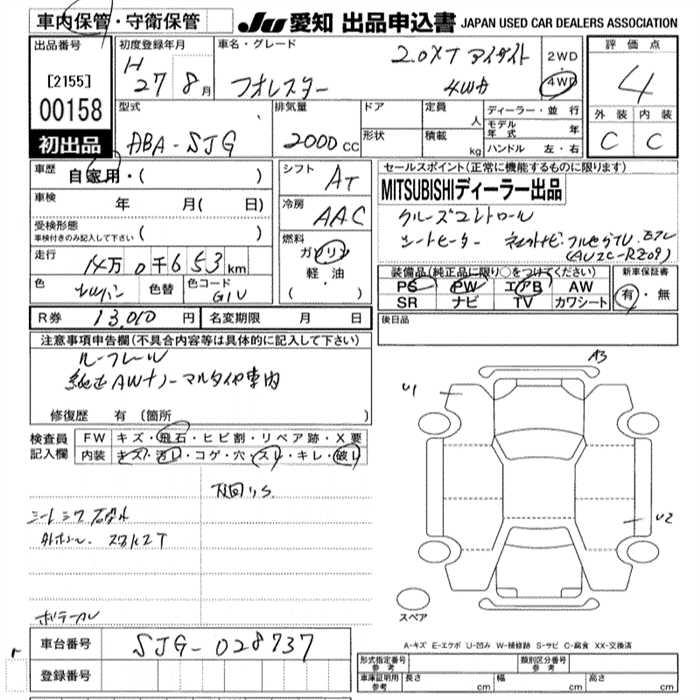 車内保管・守衛保管 JU 愛知 出品申込書 JAPAN USED CAR DEALERS ASSOCIATION
出品番号 [2155] 00158 初出品
初度登録年月 H 27年 8月
車名・グレード フォレスター 2.0XT アイサイト 4WD
2WD ・ 4WD
評価点 4
外装 内装
C C
型式 ABA-SJG
排気量 2000 CC
ドア 形状
定員 人
積載 kg
ディーラー・並行
モデル年式 年
ハンドル 左・右
車歴 自家用・( )
車検 年 月( 日)
受検形態 車検付きのみ記入して下さい ( )
走行 14万 0千653 km
色 色替 色コード G1U
シフト AT
冷房 AAC
燃料 ガソリン 軽油 ( ・ )
セールスポイント(正常に機能するものに限ります)
MITSUBISHIディーラー出品
クルーズコントロール
シートヒーター
装備品(純正品に限り○をつけてください)
PS PW エアB AW
SR ナビ TV カワシート
新車保証書 有・無
R券 13,010円 名変期限 月 日
後日品
注意事項申告欄(不具合内容等は具体的に記入して下さい)
ルーフレール
純正AWナノーマルタイヤ車内
修復歴 有 (箇所 )
検査員記入欄
FW キズ・飛石・ヒビ割・リペア跡・X要
内装 キズ・汚レ・コゲ・穴・スレ・キレ・破レ
下回りS
A3
U1
U2
スペア
A-キズ E-エクボ U-凹み W-補修跡 S-サビ C-腐食 XX-交換済
車台番号 SJG-028737
登録番号
形式指定番号 参考
類別区分番号 参考
車庫証明用 参考 長さ cm 幅 cm 高さ cm